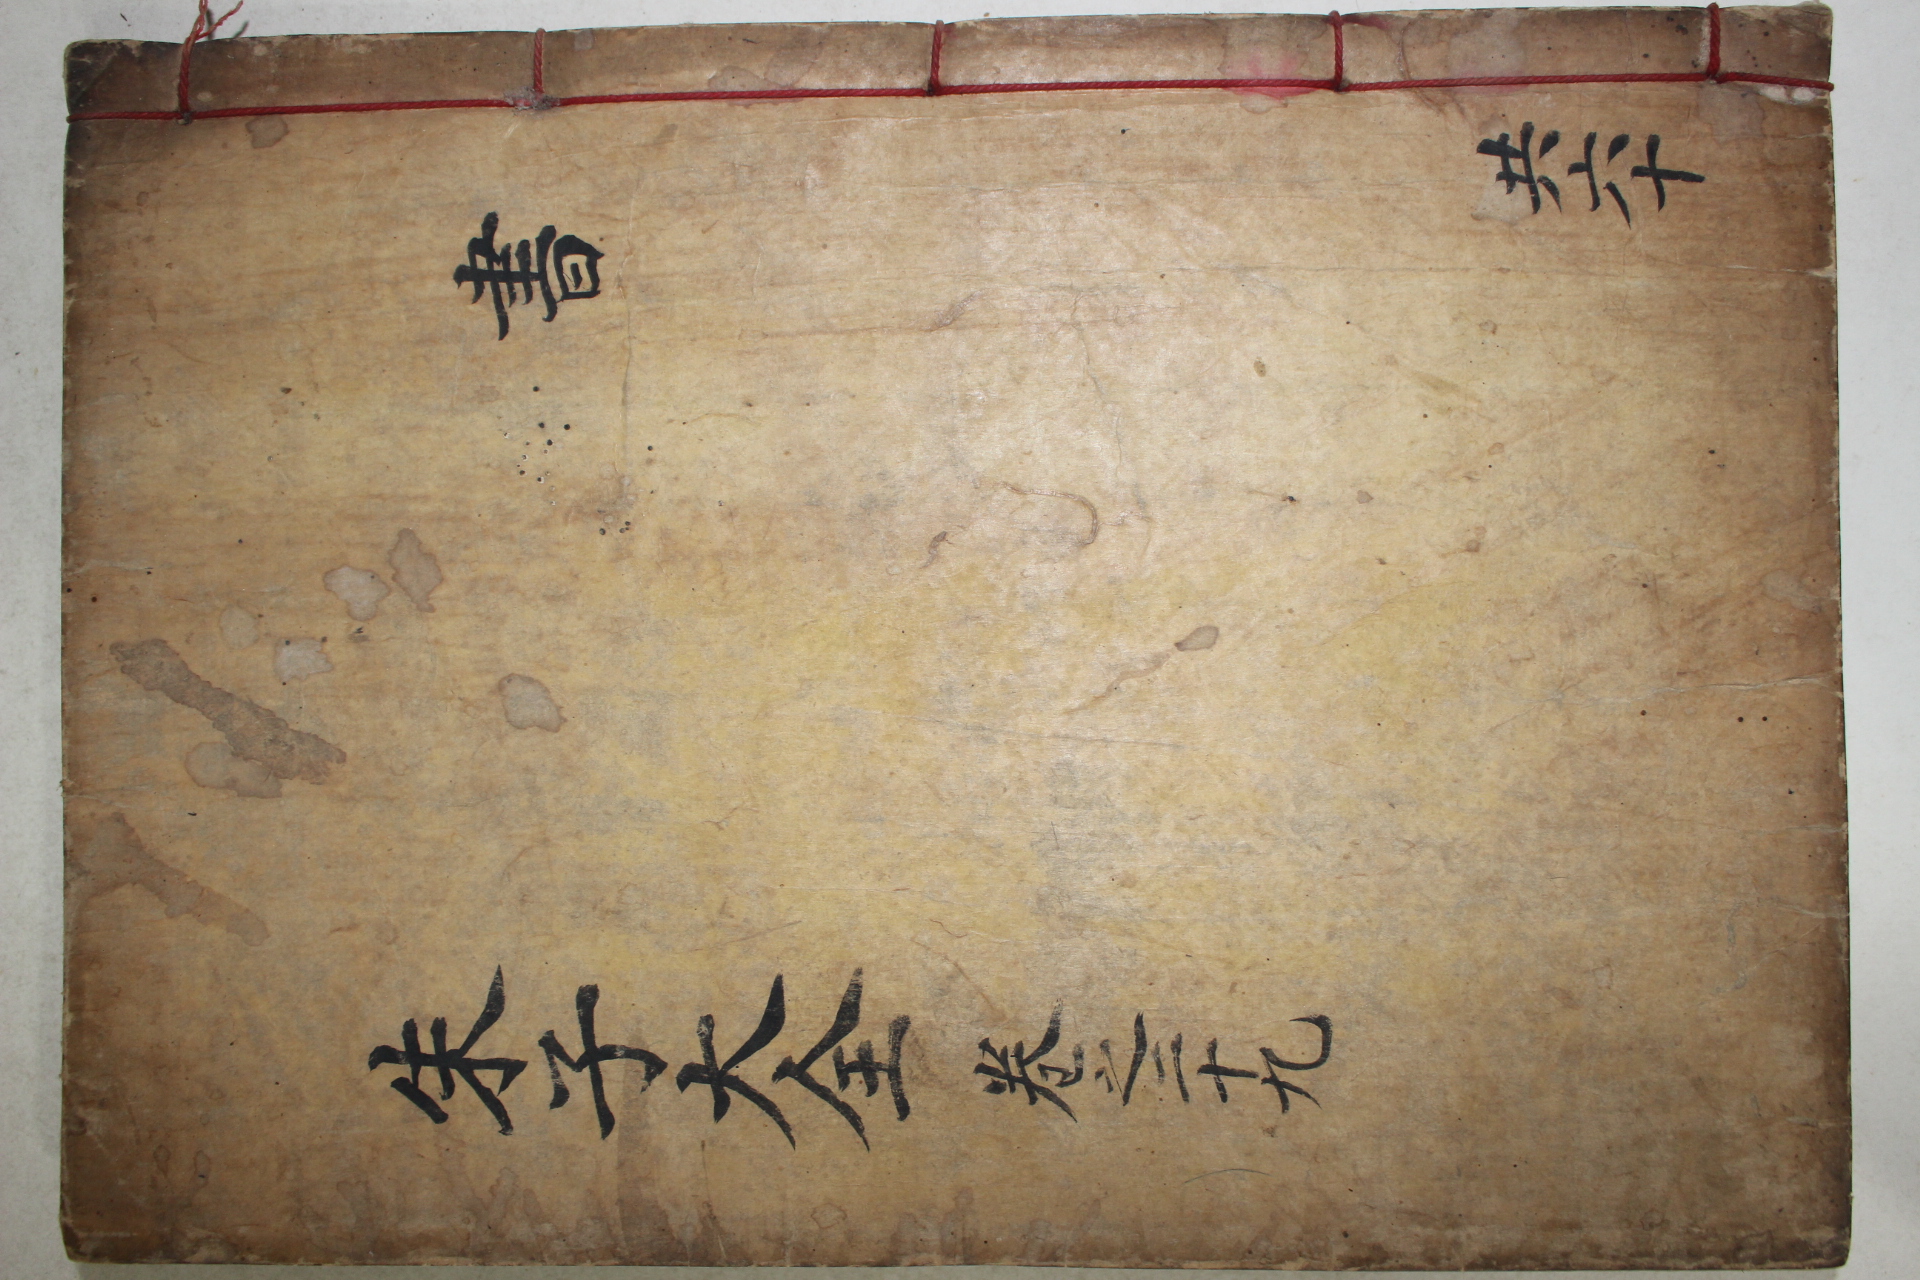 朱子大全 卷之二十九
書
共六十